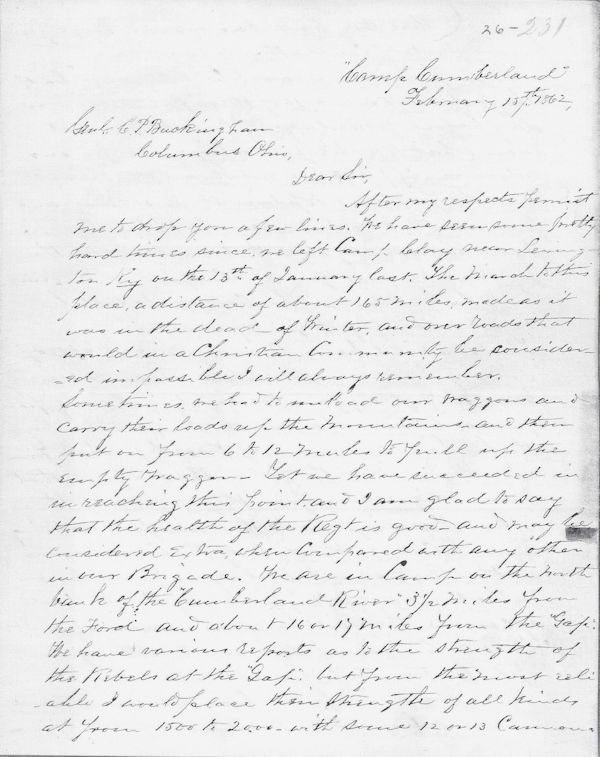 26-231
"Camp Cumberland"
February 15th, 1862,
Genl. C P Buckingham
Columbus Ohio,
Dear Sir,
After my respects permit
me to drop you a few lines. We have seen some pretty
hard times since, we left Camp Clay near Lexing
ton Ky on the 13th of January last. The March to this
place, a distance of about 165 miles, made as it
was in the dead - of Winter, and over roads that
would in a Christian Community be consider-
-ed impossible I will always remember.
Sometimes, we had to unload our waggons and
carry their loads up the Mountains - and then
put on from 6 to 12 mules to pull up the
empty waggon - Yet we have succeeded in
in reaching this point, and I am glad to say
that the health of the Regt is good - and may be
considered Extra, when compared with any other
in our Brigade. We are in Camp on the North
bank of, the "Cumberland River" 3 1/2 miles from
the Ford and about 16 or 17 miles from the "Gap".
We have various reports as to the strength of
the Rebels at the "Gap". but from the most reli
-able I would place their strength of all kinds
at from 1500 to 2000 - with some 12 or 13 Cannon.